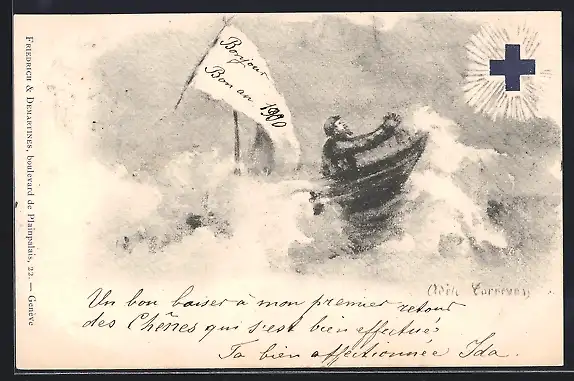 Bonjour
Bon an 1900
FRIEDRICH & DEMARTINES, boulevard de Plainpalais, 22. — Genève
Un bon baiser à mon premier retour
des Chênes qui s'est bien effectué
Ta bien affectionnée Ida.